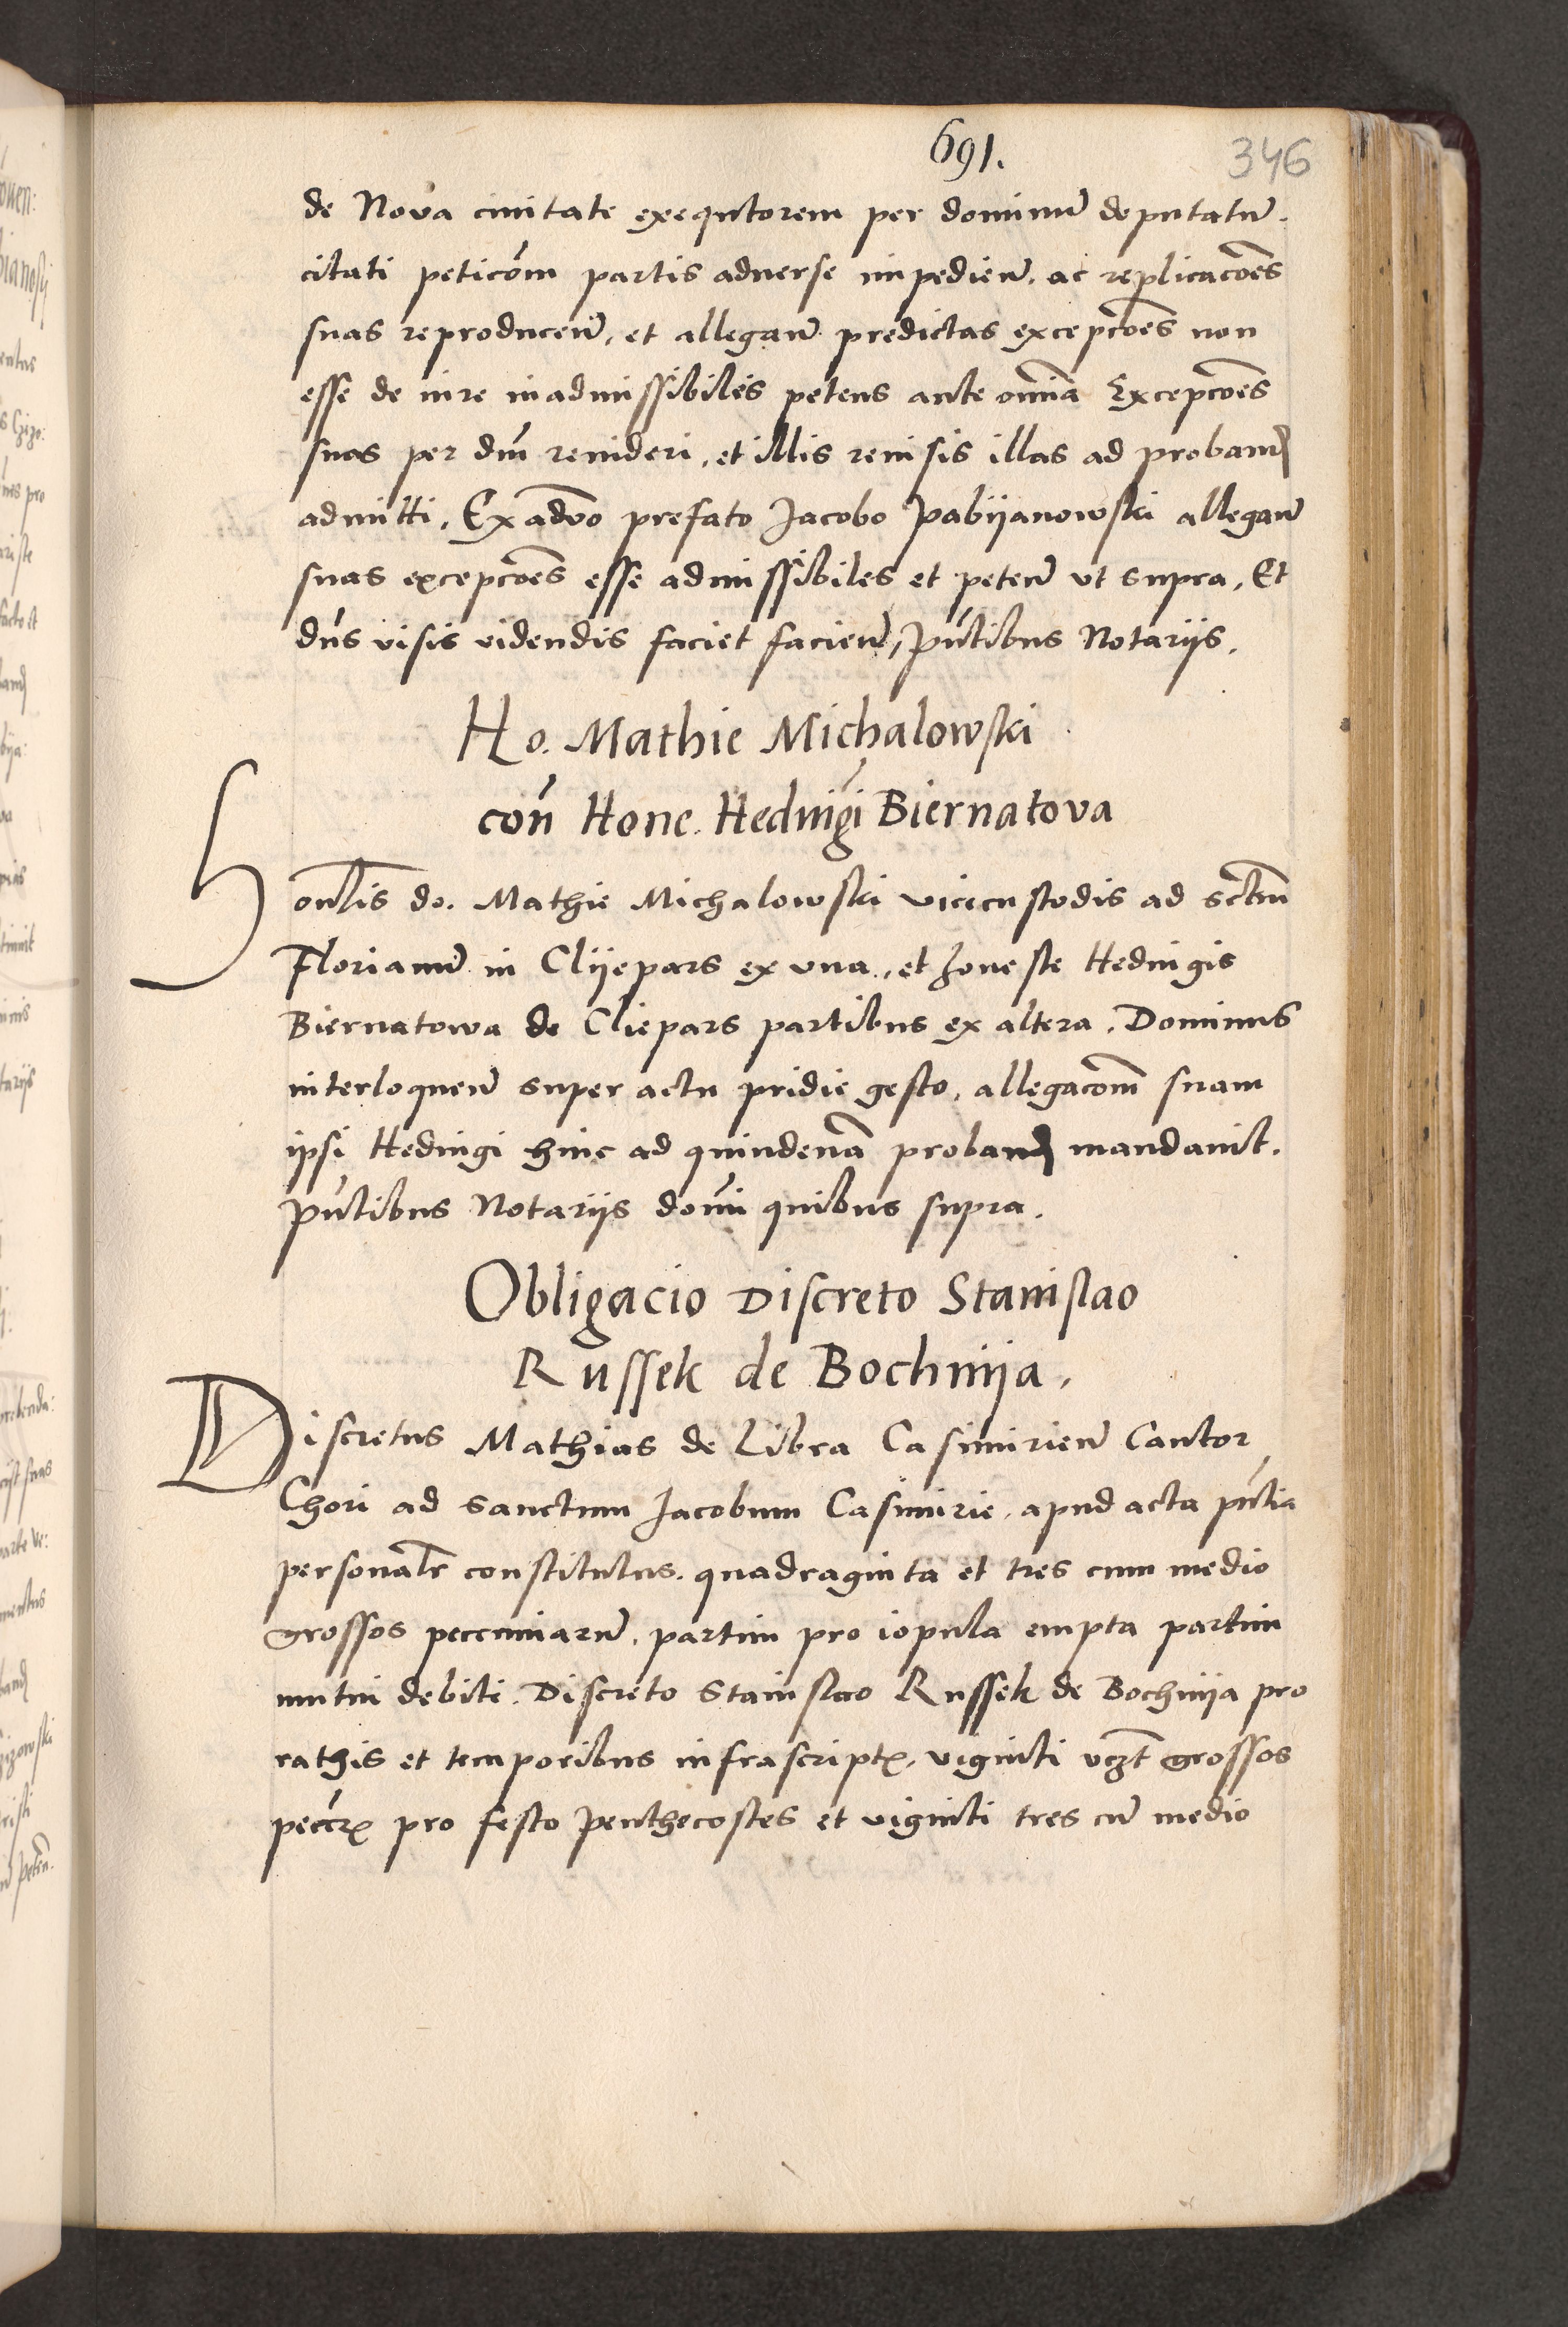 691.
346
de Nova civitate exequtorem per dominū deputatū.
citati peticōm partis adverse impedien̄. ac replicacōes
suas reproducen̄, et allegan̄ predictas excepcōes non
esse de iure inadmissibiles petens ante omīa Excepcōes
suas per dm̄ revideri, et illis revisis illas ad proband
admitti, Ex advō prefato Jacobo Pabijanowski allegan̄
suas excepcōes esse admissibiles et peten̄ ut supra, Et
dn̄s visis videndis faciet facien̄, pn̄tibus Notarijs.
Ho. Mathie Michalowski
con̄ Hone. Hedvigi Biernatova
Honl̄is do. Mathie Michalowski vicecustodis ad sctūm
Florianū in Clijepars ex una, et honeste Hedvigis
Biernatowa de Cliepars partibus ex altera. Dominus
interloquen̄ super actu pridie gesto, allegacōm suam
ipsi Hedvigi hinc ad quindenā proband mandavit.
pn̄tibus Notarijs domī quibus supra.
Obligacio Discreto Stanislao
Russek de Bochnija.
Discretus Mathias de Libra Casimirien̄ Cantor
Chori ad sanctum Jacobum Casimirie, apud acta pn̄tia
personalr̄ constitutus. quadraginta et tres cum medio
grossos pecuniarū, partim pro iopula empta partim
mutui debiti. Discreto Stanislao Russek de Bochnija pro
rathis et temporibus infrascriptꝝ, viginti vcz̄t grossos
peccꝝ pro festo Penthecostes et viginti tres cū medio